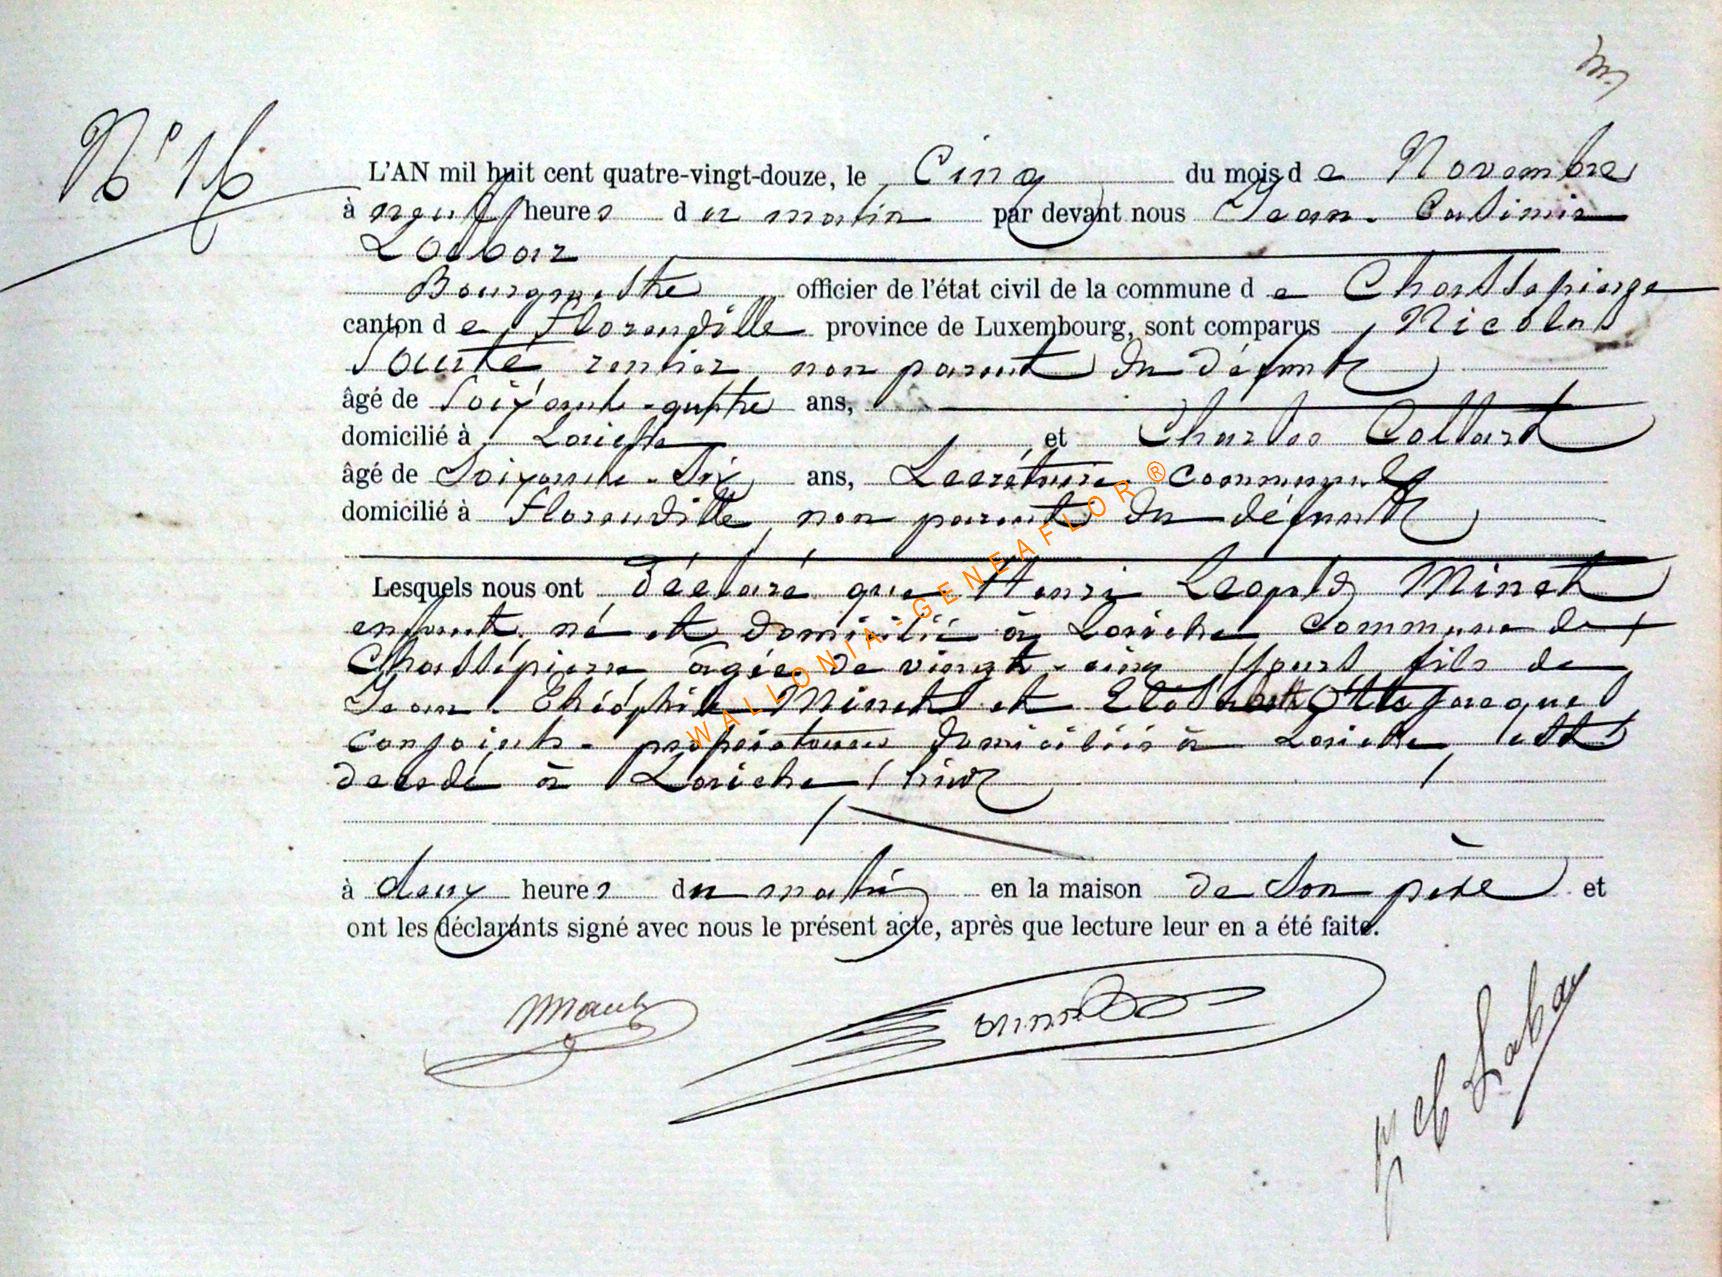 N° 16
L'AN mil huit cent quatre-vingt-douze, le Cinq du mois de Novembre
à neuf heures du matin par devant nous Jean-Casimir
Labbaz
Bourgmestre officier de l'état civil de la commune de Chassepierre
canton de Florenville province de Luxembourg, sont comparus Nicolas
rentier non parent du défunt
âgé de Soixante-quatre ans,
domicilié à Laiche et Charles Collard
âgé de Soixante-Six ans, Secrétaire communal
domicilié à Florenville, non parent du défunt
Lesquels nous ont déclaré que Henri Léopold Minet
enfant, né et domicilié à Laiche Commune de
Chassepierre âgé de vingt-cinq jours, fils de
Jean-Théophile Minet et Jacques
conjoints - propriétaires domiciliés à Laiche est
décédé à Laiche hier
à deux heures du matin en la maison de son père et
ont les déclarants signé avec nous le présent acte, après que lecture leur en a été faite.
WALLONIA-GENEAFLOR®